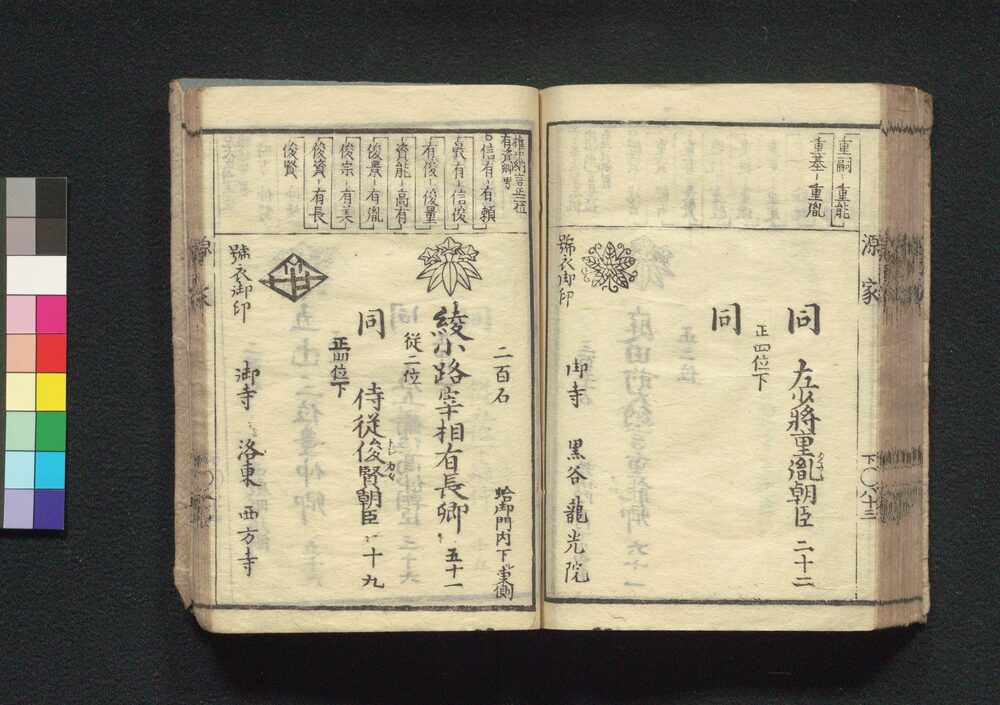 重嗣 重能
重基 重胤
源家
下〇八十三
同 左少将重胤朝臣 二十二
正四位下
同
號衣御印
御寺 黒谷 龍光院
権中納言正二位
有資卿男
信有 有頼
敦有 信俊
有俊 俊量
資能 高有
俊景 有胤
俊宗 有美
俊資 有長
俊賢
二百石
蛤御門内下ル東側
綾小路宰相有長卿 五十一
從二位
同 侍從俊賢朝臣 十九
トシカタ
正四位下
號衣御印
御寺 洛東 西方寺
源家